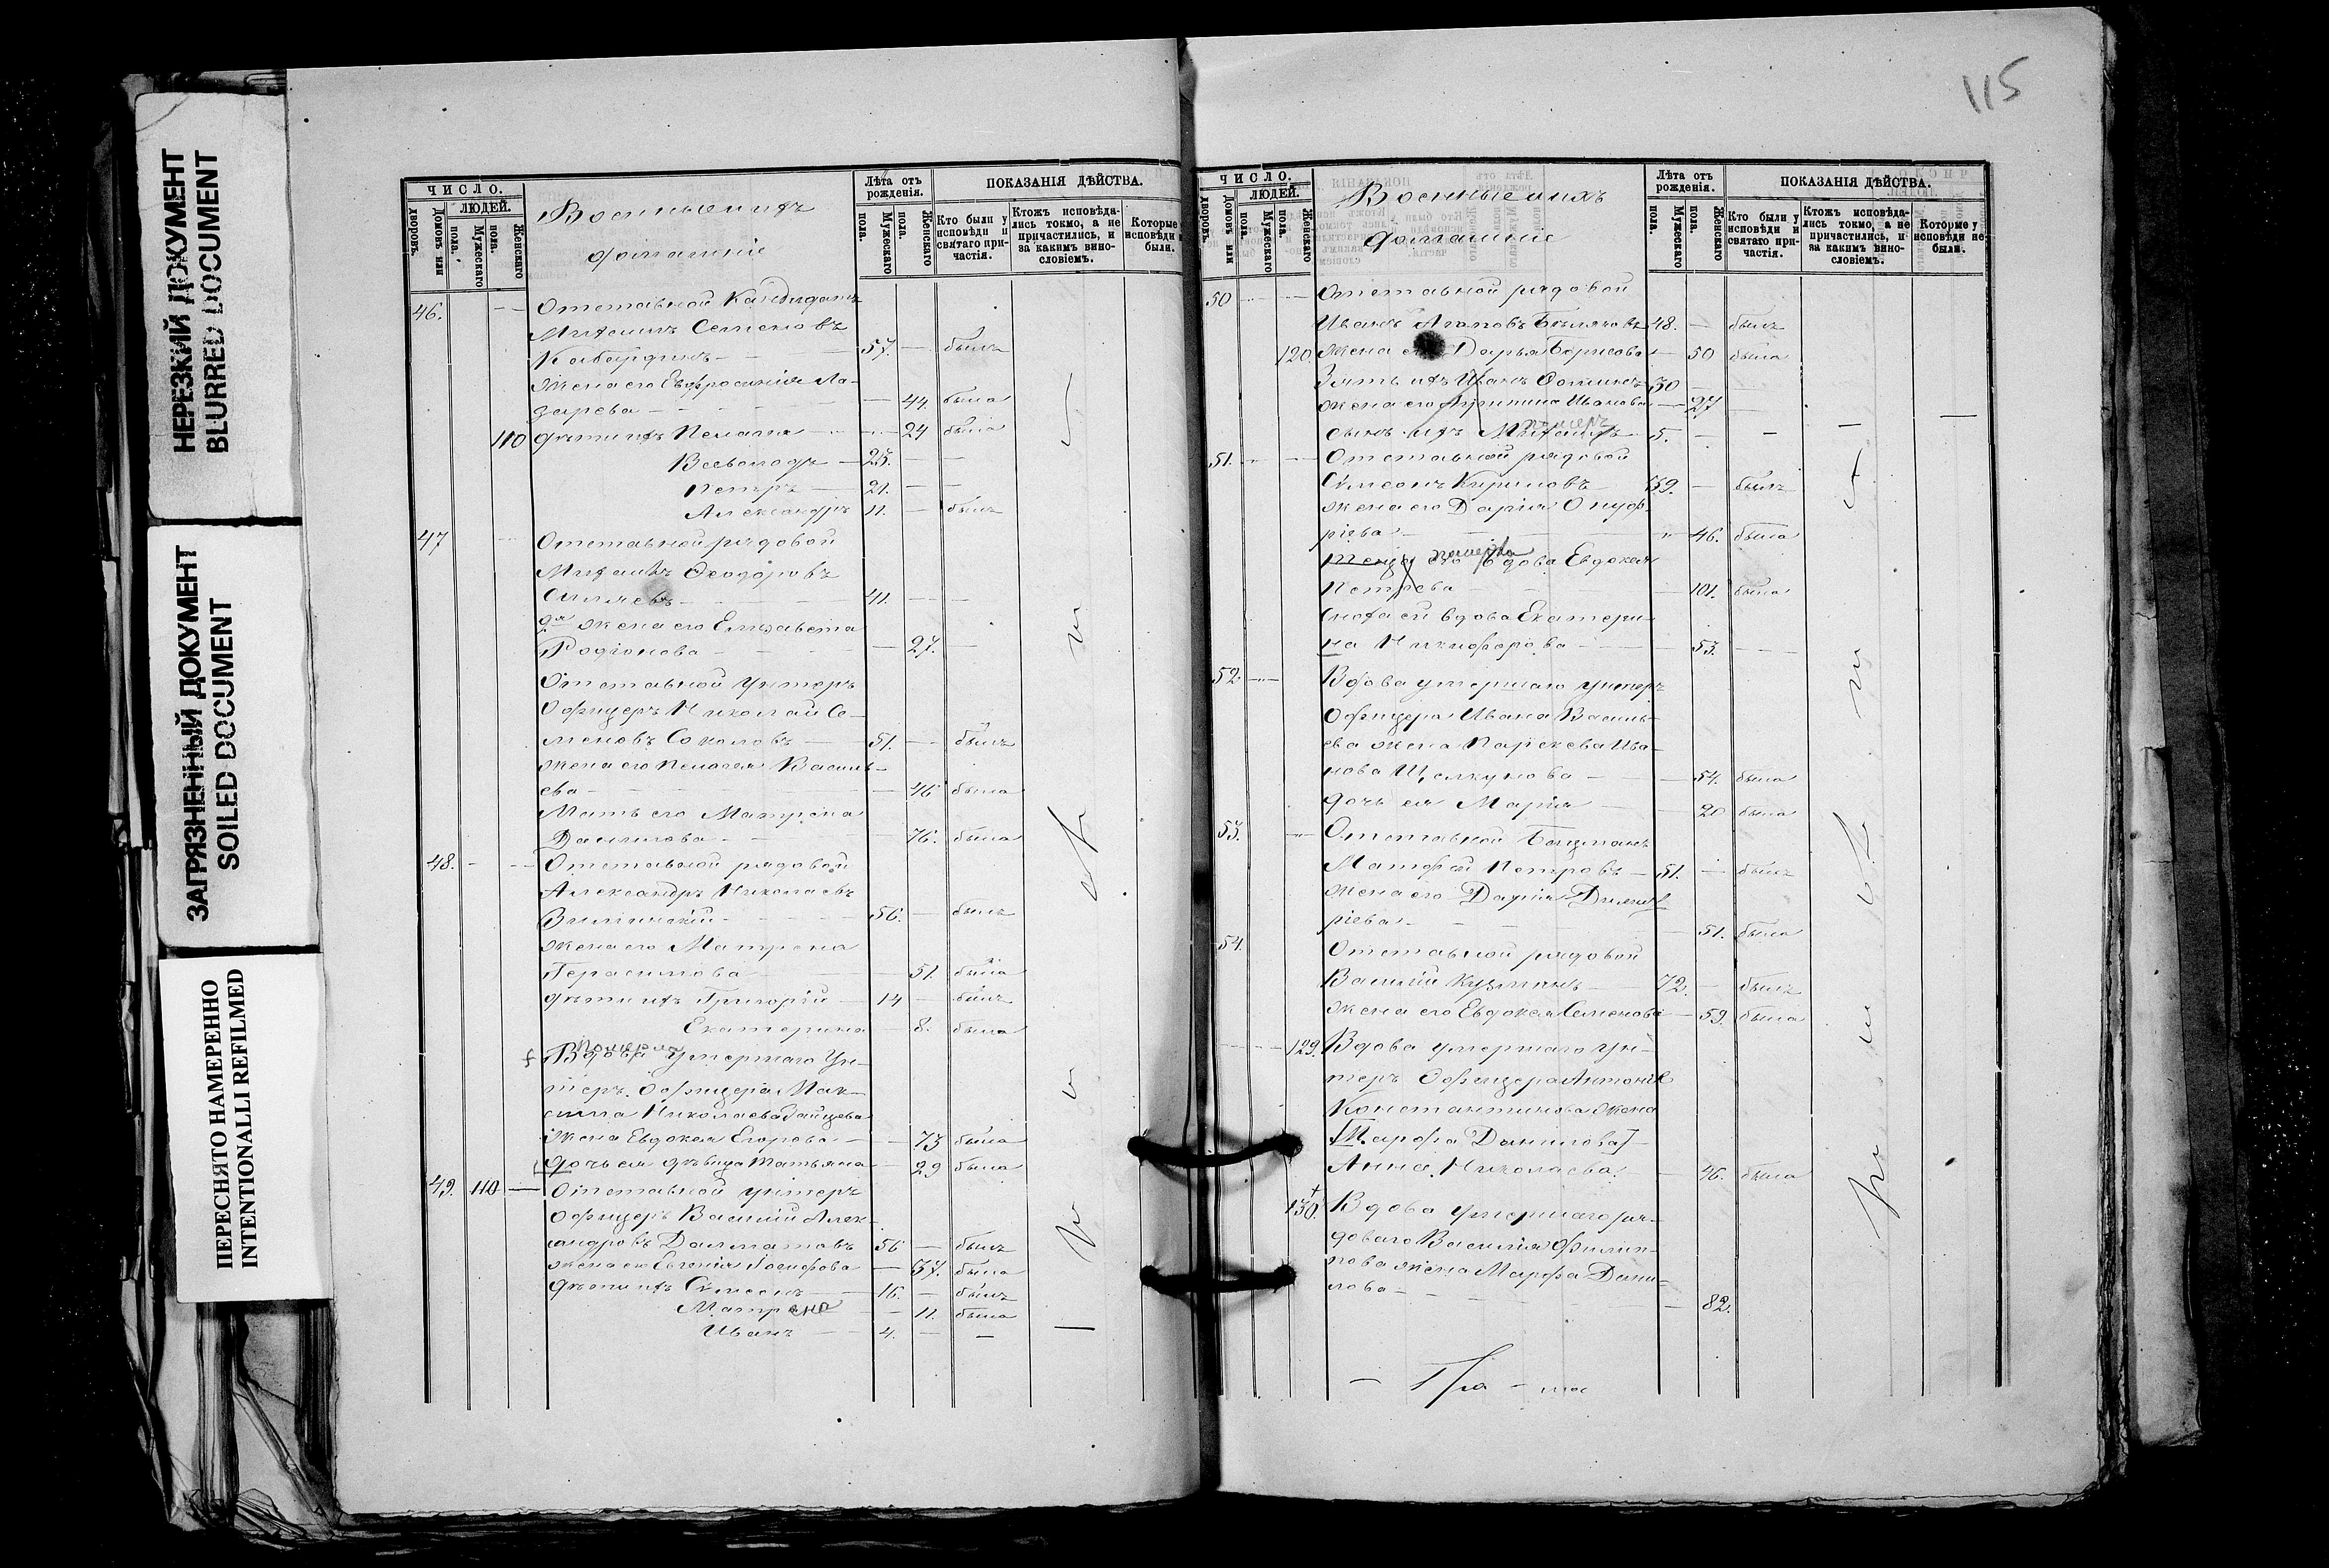 115
НЕРЕЗКИЙ ДОКУМЕНТ
BLURRED DOCUMENT
ЗАГРЯЗНЕННЫЙ ДОКУМЕНТ
SOILED DOCUMENT
ПЕРЕСНЯТО НАМЕРЕННО
INTENTIONALLI REFILMED
ЧИСЛО.
ЛЮДЕЙ.
Домовъ или дворовъ.
Мужескаго пола.
Женскаго пола.
Военные ихъ
домашніе
Лѣта отъ рожденія.
Мужескаго пола.
Женскаго пола.
ПОКАЗАНІЯ ДѢЙСТВА.
Кто были у исповѣди и святаго при-частія.
Ктожъ исповѣда-лись токмо, а не причастились, и за какимъ вино-словіемъ.
Которые исповѣди были.
46. Отставной
Михаилъ Семеновъ
57. былъ
Жена его Евфросинія Ла-
зарева 44. была
110 дѣти ихъ Пелагія 24 была
Всеволодъ 25.
Петръ 21.
Александръ 11. былъ
47 Отставной рядовой
Михаилъ Ѳеодоровъ
41.
2я жена его Елизавета
Родіонова 27.
Отставной Унтеръ
Офицеръ Николай Се-
меновъ Соколовъ 51. былъ
жена его Пелагея Василь-
ева 46 была
Мать его Матрена
Данилова 76. была
48. Отставной рядовой
Александръ Николаевъ
56. былъ
жена его Матрена
Герасимова 51. была
дѣти ихъ Григорій 14 былъ
Екатерина 8. была
померла
Вдова умершаго Ун-
теръ Офицера Мак-
сима Николаева Зайцева
жена Евдокея Егорова 73 была
дочь ея дѣвица Татьяна 29 была
49. 110 Отставной унтеръ
Офицеръ Василій Алек-
сандровъ Далматовъ 56 былъ
жена его Евгенія Іосифова 37. была
дѣти ихъ Сѵмеонъ 16. былъ
Матрена 11. была
Иванъ 4.
ЧИСЛО.
ЛЮДЕЙ.
Домовъ или дворовъ.
Мужескаго пола.
Женскаго пола.
Военные ихъ
домашніе
Лѣта отъ рожденія.
Мужескаго пола.
Женскаго пола.
ПОКАЗАНІЯ ДѢЙСТВА.
Кто были у исповѣди и святаго при-частія.
Ктожъ исповѣда-лись токмо, а не причастились, и за какимъ вино-словіемъ.
Которые у исповѣди не были.
50 Отставной рядовой
Иванъ Агаповъ Бѣляковъ 48. былъ
120 Жена его Дарья Борисова 50 была
Зять ихъ Иванъ Ѳоминъ 30
жена его Иванова 27
померъ
сынъ ихъ Михаилъ 5.
51. Отставной рядовой
Сѵмеонъ Кириловъ 59. былъ
жена его Дарія Онуф-
ріева 46. была
померла
Теща его вдова Евдокея
Петрова 101. была
Сноха ей вдова Екатери-
на Никифорова 53.
52. Вдова умершаго унтеръ
Офицера Ивана Василь-
ева жена Параскева Ива-
нова Щелкунова 54. была
дочь ея Марія 20 была
53. Отставной Боцманъ
Матфей Петровъ 51. былъ
Жена его Дарія Димит-
ріева 51. была
54. Отставной рядовой
Василій Кузминъ 72. былъ
жена его Евдокея Семенова 59. была
129. Вдова умершаго Ун-
теръ Офицера Антонія
Константинова жена
[Марфа Данилова]
Анна Николаева 46. была
130. Вдова умершаго ря-
доваго Василія Филип-
пова жена Марфа Дани-
лова 82.